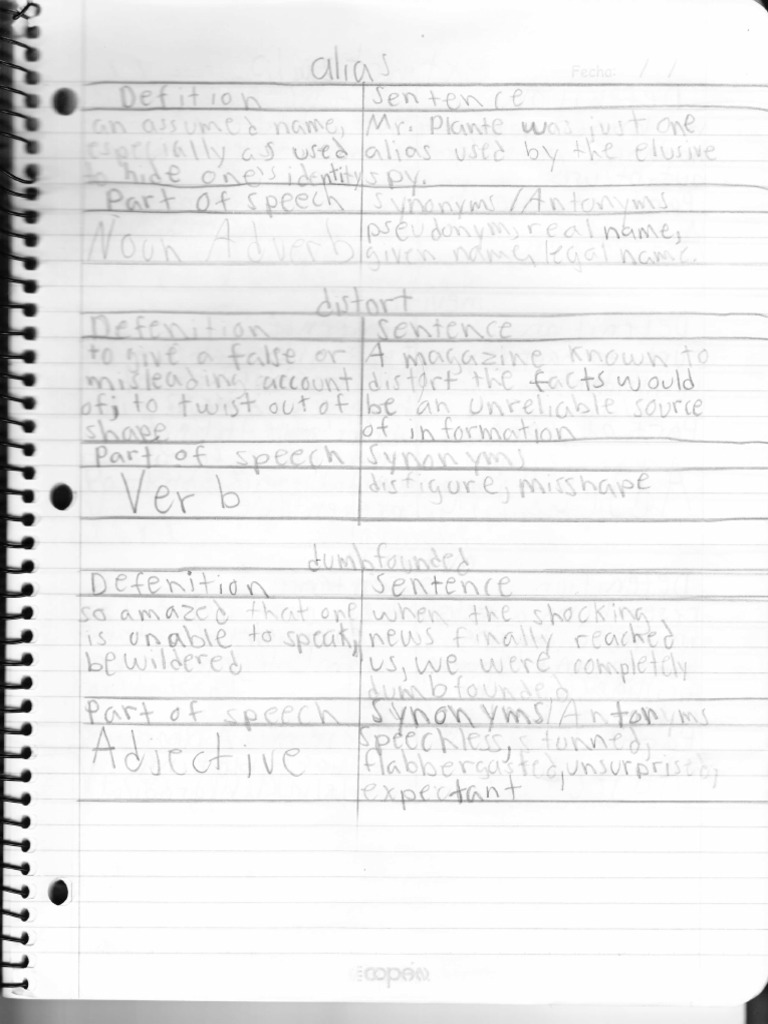 alias
Fecha: / /
Defition
Sentence
an assumed name,
especially as used
to hide one's identity
Mr. Plante was just one
alias used by the elusive
spy.
Part of speech
Synonyms/Antonyms
Noun Adverb
pseudonym, real name,
given name, legal name.
distort
Defenition
Sentence
to give a false or
misleading account
of; to twist out of
shape
A magazine known to
distort the facts would
be an unreliable source
of information
Part of speech
Synonyms
Verb
disfigure, misshape
dumbfounded
Defenition
Sentence
so amazed that one
is unable to speak,
bewildered
when the shocking
news finally reached
us, we were completely
dumbfounded
Part of speech
Synonyms/Antonyms
Adjective
Speechless, stunned,
flabbergasted, unsurprised,
expectant